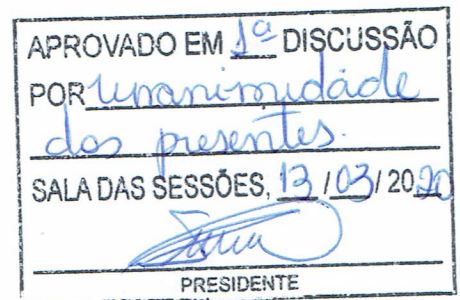 APROVADO EM 1ª DISCUSSÃO
POR unanimidade
dos presentes.
SALA DAS SESSÕES, 13 / 03 / 2020
PRESIDENTE